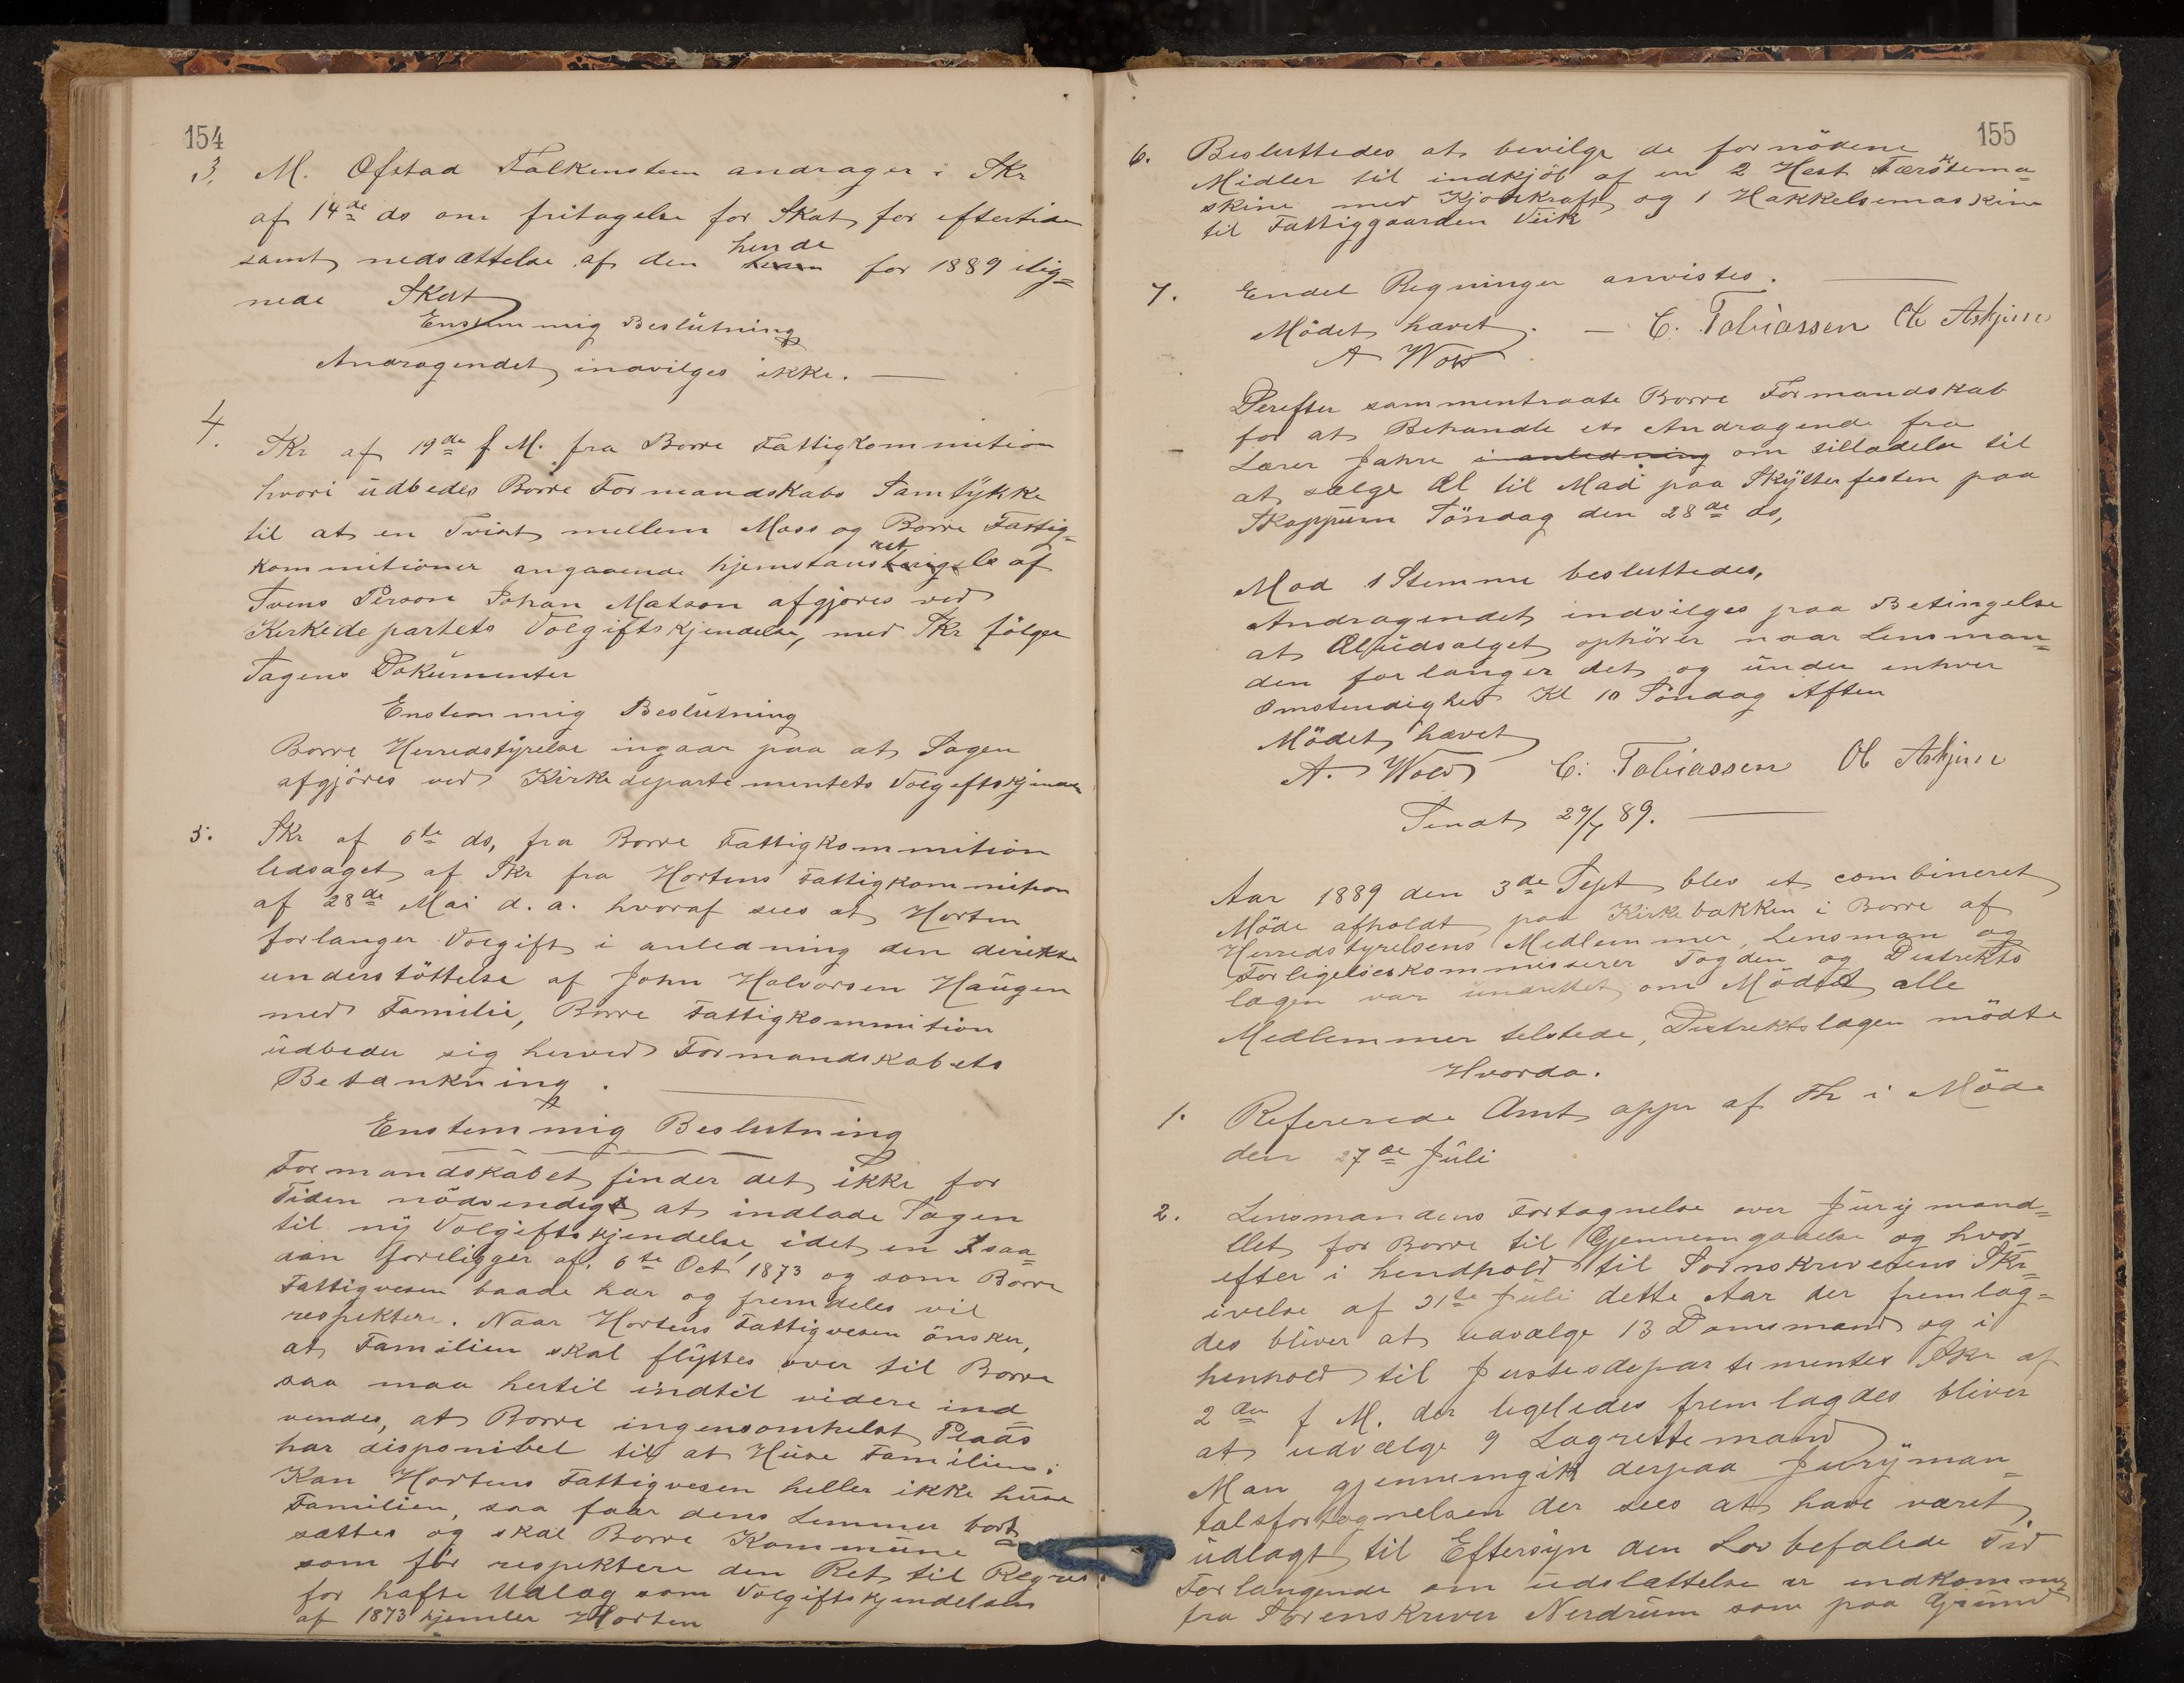 154
3. M. Ofstad Falkensten andrager i Skr
af 14de ds om fritagelse for Skat for eftertiden
samt nedsættelse af den hende for 1889 ilig=
nede Skat
Enstemmig Beslutning
Andragendet indvilges ikke. —
4. Skr af 19de f M. fra Borre Fattigkommition
hvori udbedes Borre Formandskabs Samtykke
til at en Tvist mellem Moss og Borre Fattig=
kommitioner angaaende hjemstavnsret af
Svens Person Johan Matson afgjøres ved
Kirkedepartets Volgiftskjendelse, med Skr følger
Sagens Dokumenter
Enstemmig Beslutning
Borre Herredstyrelse ingaar paa at Sagen
afgjöres ved Kirkedepartementets Volgeftskjendelse
5. Skr af 6te ds, fra Borre Fattigkommition
ledsaget af Skr fra Hortens Fattigkommition
af 28de Mai d. a. hvoraf sees at Horten
forlanger Volgift i anledning den direkte
understöttelse af John Halvorsen Haugen
med Familie, Borre Fattigkommition
udbeder sig herved Formandskabets
Betænkning.
Enstemmig Beslutning
Formandskabet finder det ikke for
Tiden nödvendigt at indlade Sagen
til ny Volgiftskjendelse idet en saa=
dan foreligger af 6te Oct 1873 og som Borre
Fattigvesen baade har og fremdeles vil
respektere. Naar Hortens Fattigvesen önsker,
at Familien skal flyttes over til Borre
saa maa hertil indtil videre ind
vendes, at Borre ingensomhelst Plads
har disponibel til at Huse Familien.
Kan Hortens Fattigvesen heller ikke huse
Familien, saa faar dens Lemmer bort
sættes og skal Borre Kommune
som för respektere den Ret til Regres
for hafte Udlæg som Volgiftskjendelsen
af 1873 hjemler Horten
155
6. Besluttedes at bevilge de fornödene
Midler til indkjöb af en 2 Hest Tærskema=
skine med Kjörkraft og 1 Hakkelsemaskine
til Fattiggaarden Viik
7. Endel Regninger anvistes. —
Mödet hævet. — C. Tobiassen Ol Askjem
A Wold
Derefter sammentraate Borre Formandskab
for at Behandle et Andragende fra
Lærer Jahre i anledning om tilladelse til
at sælge Øl til Mad paa Skytterfesten paa
Skoppum Söndag den 28de ds,
Mod 1 Stemme besluttedes,
Andragendet indvilges paa Betingelse
at Øludsalget ophörer naar Lensman=
den forlanger det og under enhver
Omstendighed Kl 10 Söndag Aften
Mödet hævet
A. Wold C. Tobiassen Ol Askjem
Sendt 29/7 89. —
Aar 1889 den 3de Sept blev et combineret
Möde afholdt paa Kirkebakken i Borre af
Herredstyrelsens Medlemmer, Lensman og
Forligelseskommisserer Fogden og Distrikts
lægen var undrettet om Mödet alle
Medlemmer tilstede, Distriktslægen mödte
Hvorda.
1. Refererede Amt appr af Fh i Möde
den 27de Juli
2. Lensmandens Fortegnelse over Jurymand=
tlet for Borre til Gjennemgaaelse og hvor
efter i hendhold til Sornskriverens Skr=
ivelse af 31te Juli dette Aar der fremlag=
des bliver at udvælge 13 Domsmænd og i
henhold til Justesdepartementes Skr af
2den f M. der ligeledes fremlagdes bliver
at udvælge 9 Lagrettemænd
Man gjennemgik derpaa Juryman=
talsfortegnelsen der sees at have været
udlagt til Eftersyn den Lov befalede Tid
Forlangende om udslættelse er indkommen
fra Sorenskriver Nerdrum som paa Grund